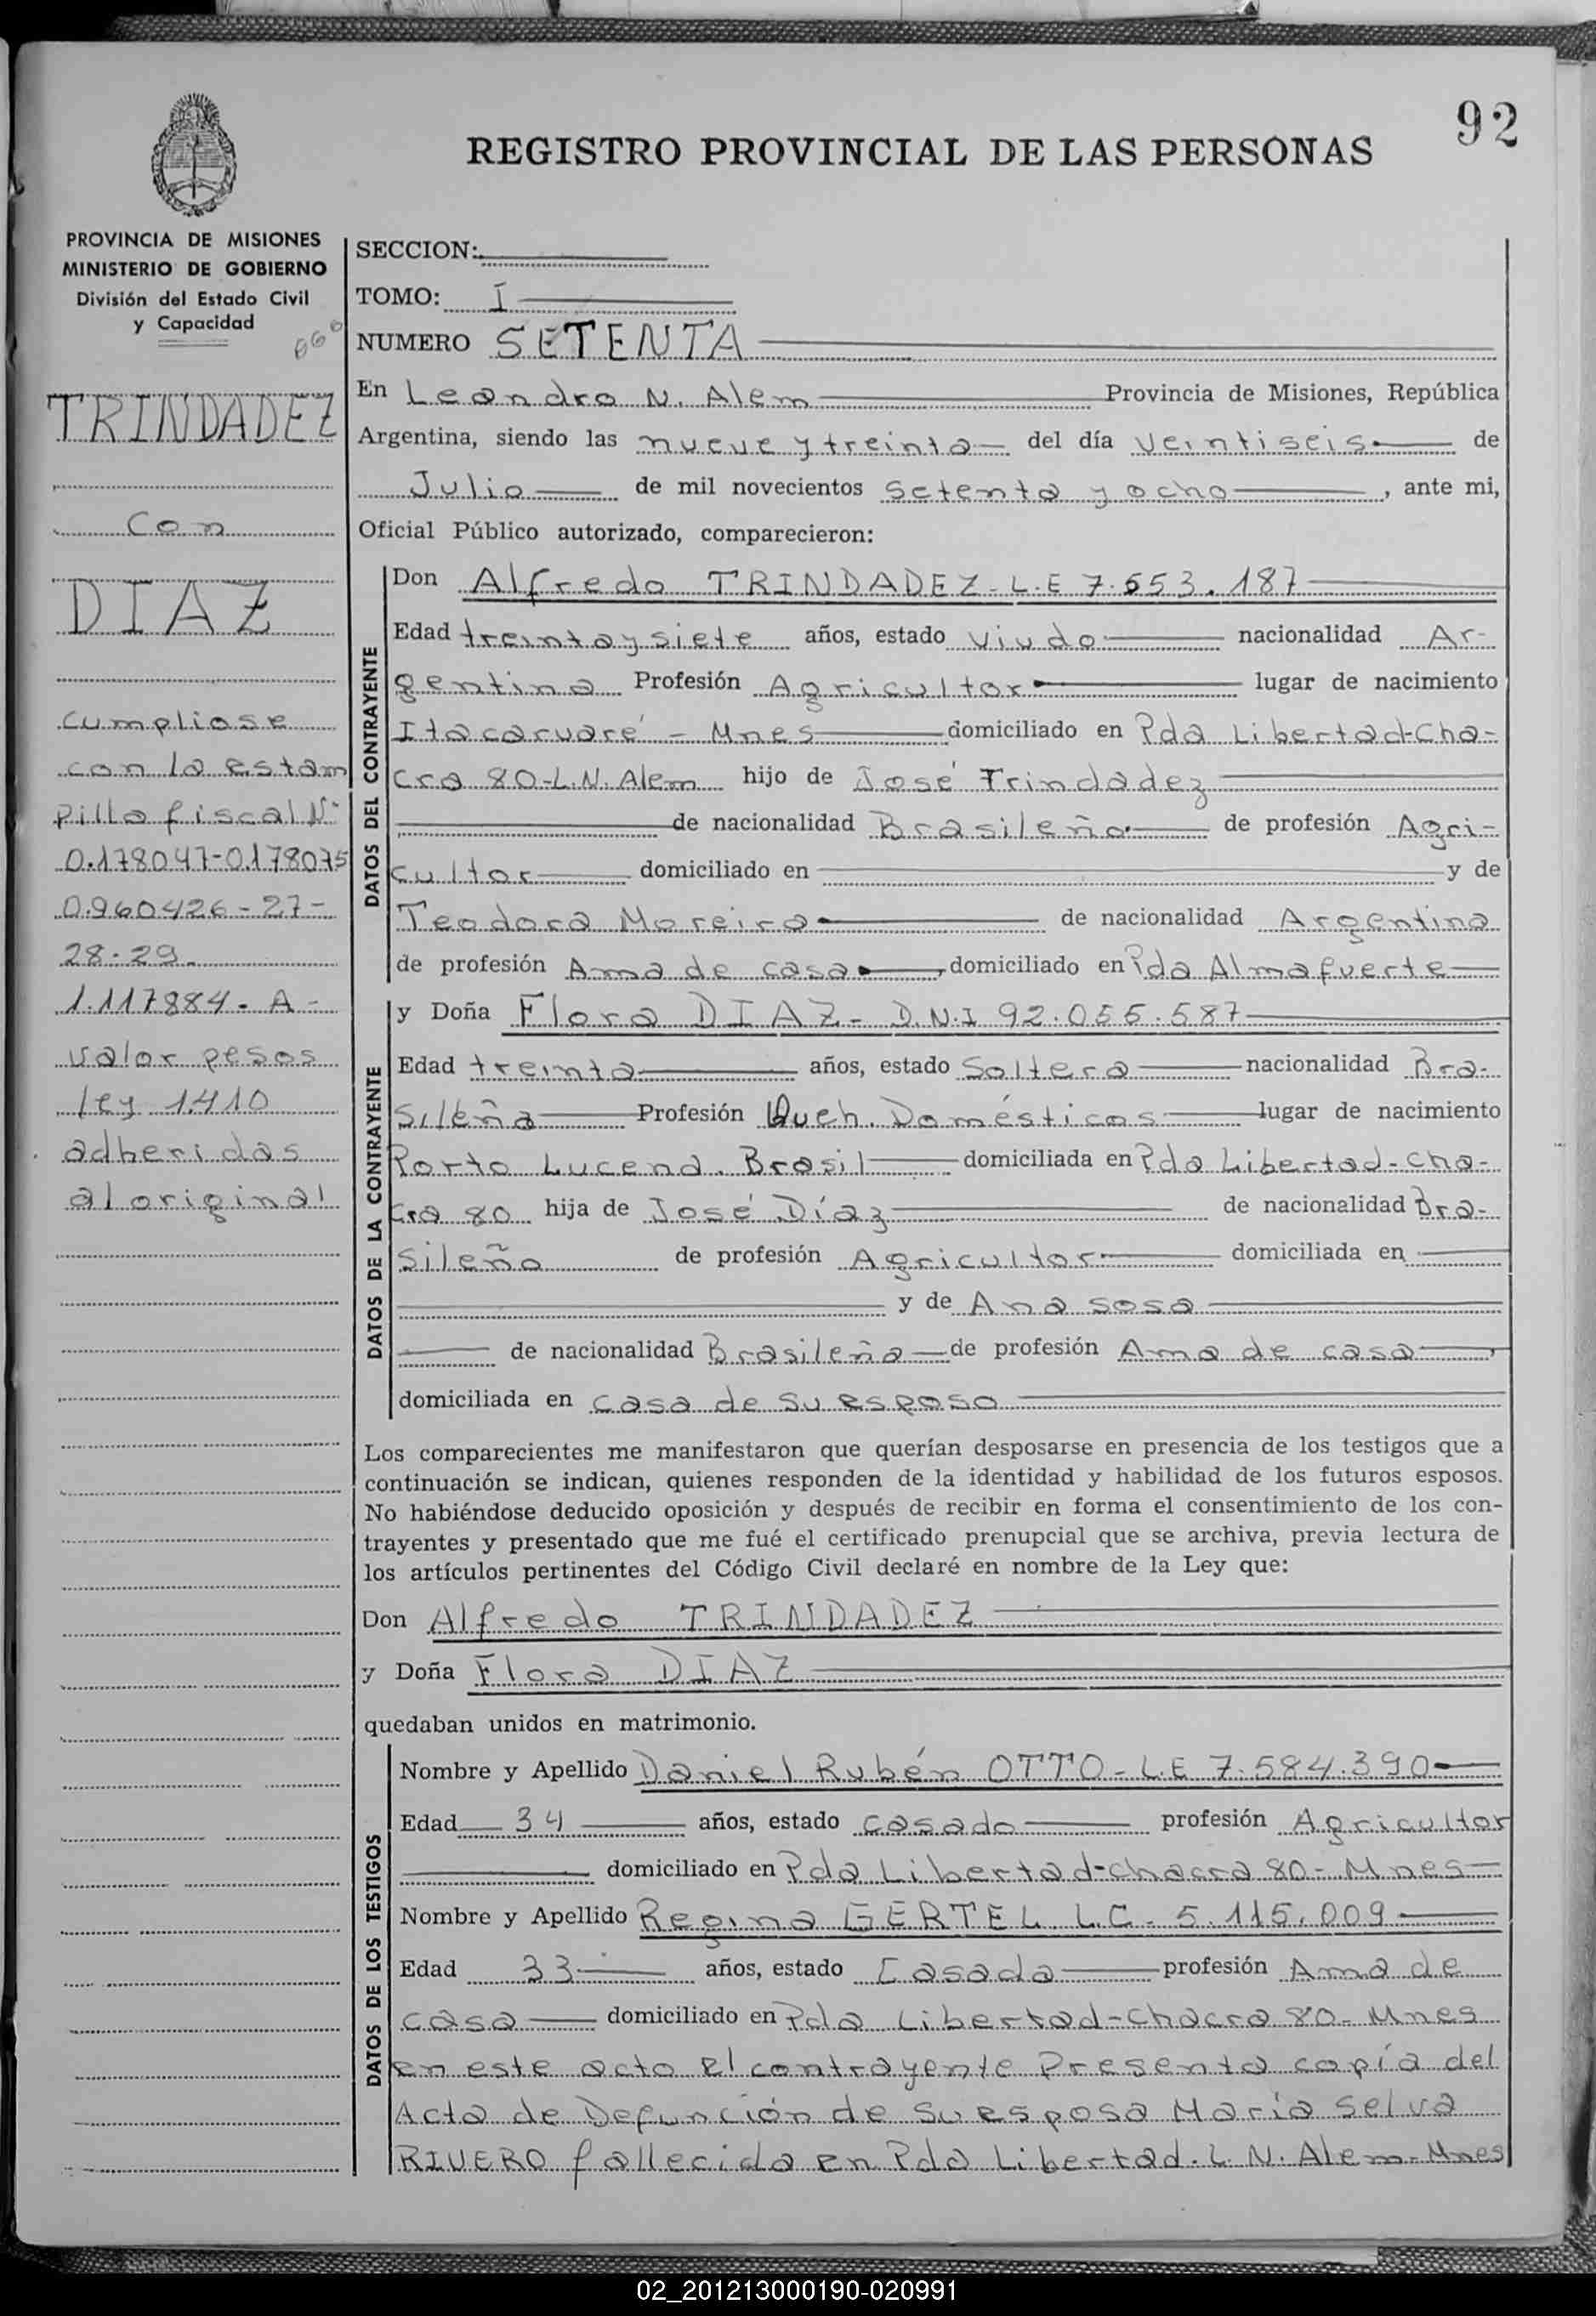 92
REGISTRO PROVINCIAL DE LAS PERSONAS
PROVINCIA DE MISIONES
MINISTERIO DE GOBIERNO
División del Estado Civil
y Capacidad
666
TRINDADEZ
con
DIAZ
cumpliose
con la estam
pilla fiscal Nº
0.178047-0.178075
0.960426-27-
28-29.
1.117884-A-
valor pesos
ley 1.410
adheridas
al original
SECCION:
TOMO: I
NUMERO SETENTA
En Leandro N. Alem Provincia de Misiones, República
Argentina, siendo las nueve y treinta del día veintiseis de
Julio de mil novecientos setenta y ocho, ante mi,
Oficial Público autorizado, comparecieron:
DATOS DEL CONTRAYENTE
Don Alfredo TRINDADEZ-L.E 7.553.187
Edad treinta y siete años, estado viudo nacionalidad Ar-
gentina Profesión Agricultor lugar de nacimiento
Itacaruaré - Mnes domiciliado en Pda Libertad-Cha-
cra 80-L.N. Alem hijo de José Trindadez
de nacionalidad Brasileña de profesión Agri-
cultor domiciliado en y de
Teodora Moreira de nacionalidad Argentina
de profesión Ama de casa, domiciliado en Pda Almafuerte
DATOS DE LA CONTRAYENTE
y Doña Flora DIAZ- D.N.I 92.055.587
Edad treinta años, estado Soltera nacionalidad Bra-
sileña Profesión Queh. Domésticos lugar de nacimiento
Porto Lucena. Brasil domiciliada en Pda Libertad-Cha-
cra 80 hija de José Díaz de nacionalidad Bra-
sileña de profesión Agricultor domiciliada en
y de Ana sosa
de nacionalidad Brasileña de profesión Ama de casa,
domiciliada en casa de su esposo
Los comparecientes me manifestaron que querían desposarse en presencia de los testigos que a
continuación se indican, quienes responden de la identidad y habilidad de los futuros esposos.
No habiéndose deducido oposición y después de recibir en forma el consentimiento de los con-
trayentes y presentado que me fué el certificado prenupcial que se archiva, previa lectura de
los artículos pertinentes del Código Civil declaré en nombre de la Ley que:
Don Alfredo TRINDADEZ
y Doña Flora DIAZ
quedaban unidos en matrimonio.
DATOS DE LOS TESTIGOS
Nombre y Apellido Daniel Rubén OTTO-L.E 7.584.390
Edad 34 años, estado casado profesión Agricultor
domiciliado en Pda Libertad-chacra 80-Mnes
Nombre y Apellido Regina GERTEL L.C. 5.115.009
Edad 33 años, estado Casada profesión Ama de
casa domiciliado en Pda Libertad-Chacra 80-Mnes
en este acto el contrayente Presenta copía del
Acta de Defunción de su esposa María Selva
RIVERO fallecida en Pda Libertad.L.N.Alem-Mnes
02_201213000190-020991